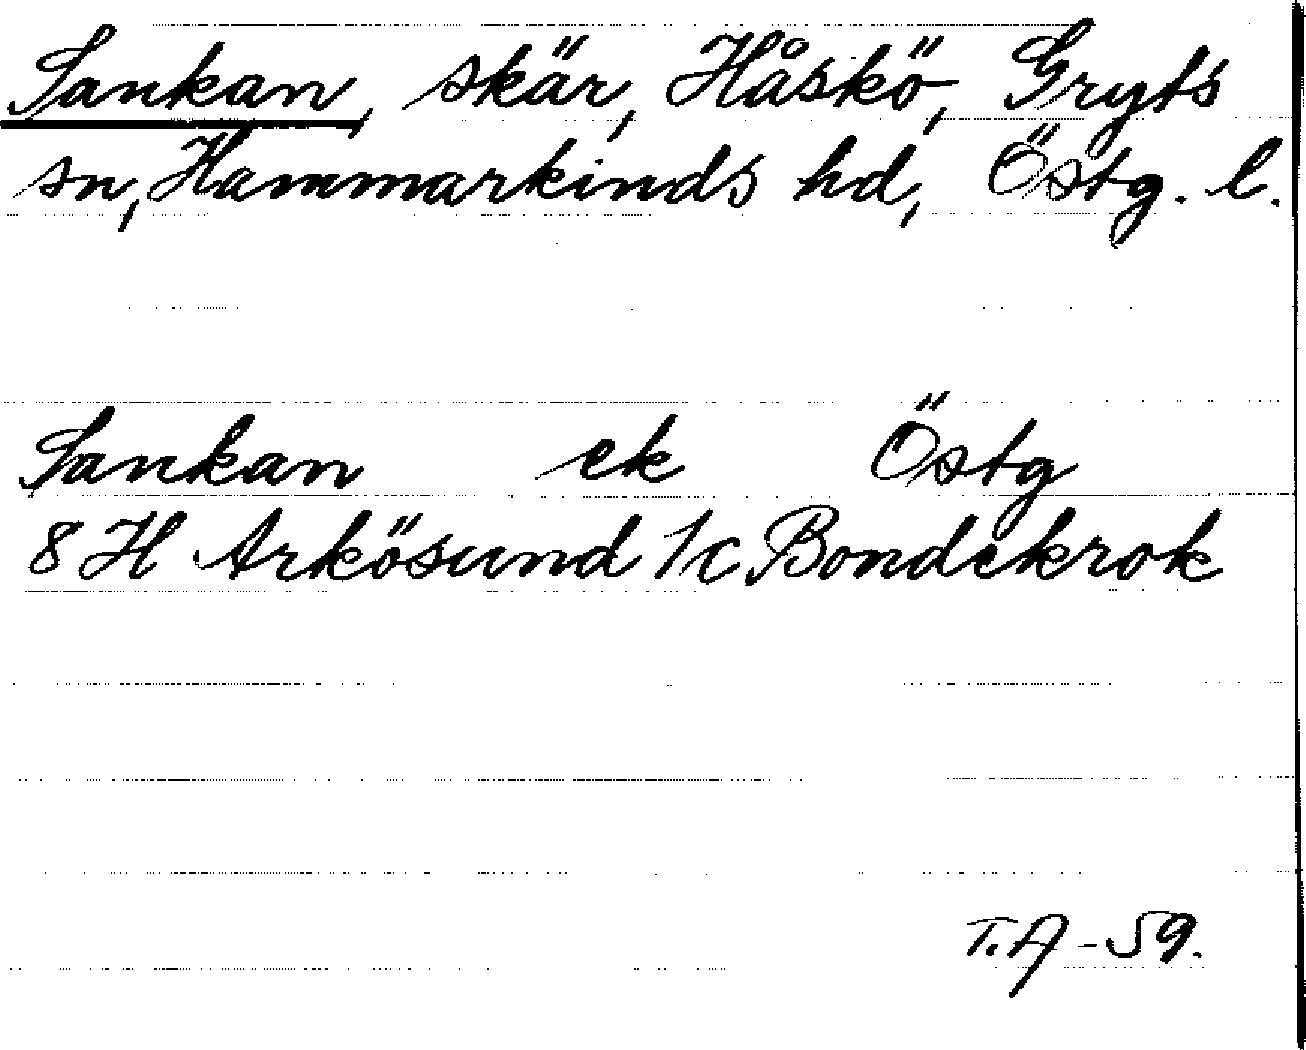 Sankan, skär, Håskö, Gryts
sn, Hammarkinds hd, Östg. l.
Sankan ek Östg
8 H Arkösund 1/c Bondekrok
T.A -59.